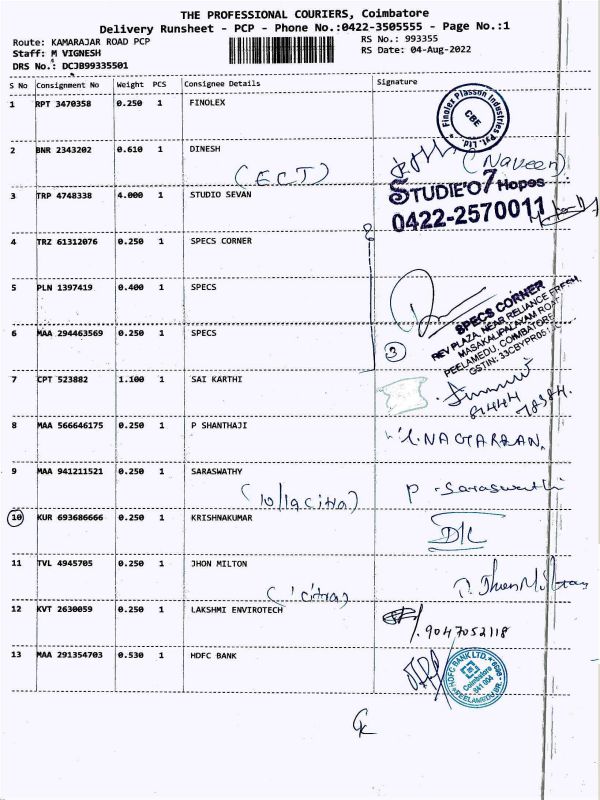 THE PROFESSIONAL COURIERS, Coimbatore
Delivery Runsheet - PCP - Phone No.:0422-3505555 - Page No.:1
Route: KAMARAJAR ROAD PCP
RS No.: 993355
Staff: M VIGNESH
RS Date: 04-Aug-2022
DRS No.: DCJB99335501
S No Consignment No Weight PCS Consignee Details Signature
1 RPT 3470358 0.250 1 FINOLEX
Finolex Plasson Industries Pvt. Ltd. * CBE
2 BNR 2343202 0.610 1 DINESH
(Naveen)
(ECI)
3 TRP 4748338 4.000 1 STUDIO SEVAN
STUDIE'O7 Hopes
0422-2570011
4 TRZ 61312076 0.250 1 SPECS CORNER
5 PLN 1397419 0.400 1 SPECS
SPECS CORNER
REV PLAZA, NEAR RELIANCE FRESH,
MASAKALIPALAYAM ROAD
PEELAMEDU, COIMBATORE
6 MAA 294463569 0.250 1 SPECS
3
7 CPT 523882 1.100 1 SAI KARTHI
81444 78384.
8 MAA 566646175 0.250 1 P SHANTHAJI
NAGARAAN.
9 MAA 941211521 0.250 1 SARASWATHY
P. Saraswathi
10 KUR 693686666 0.250 1 KRISHNAKUMAR
DK
11 TVL 4945705 0.250 1 JHON MILTON
12 KVT 2630059 0.250 1 LAKSHMI ENVIROTECH
9047052118
13 MAA 291354703 0.530 1 HDFC BANK
HDFC BANK LTD.
Coimbatore
641 004
PEELAMEDU BR.